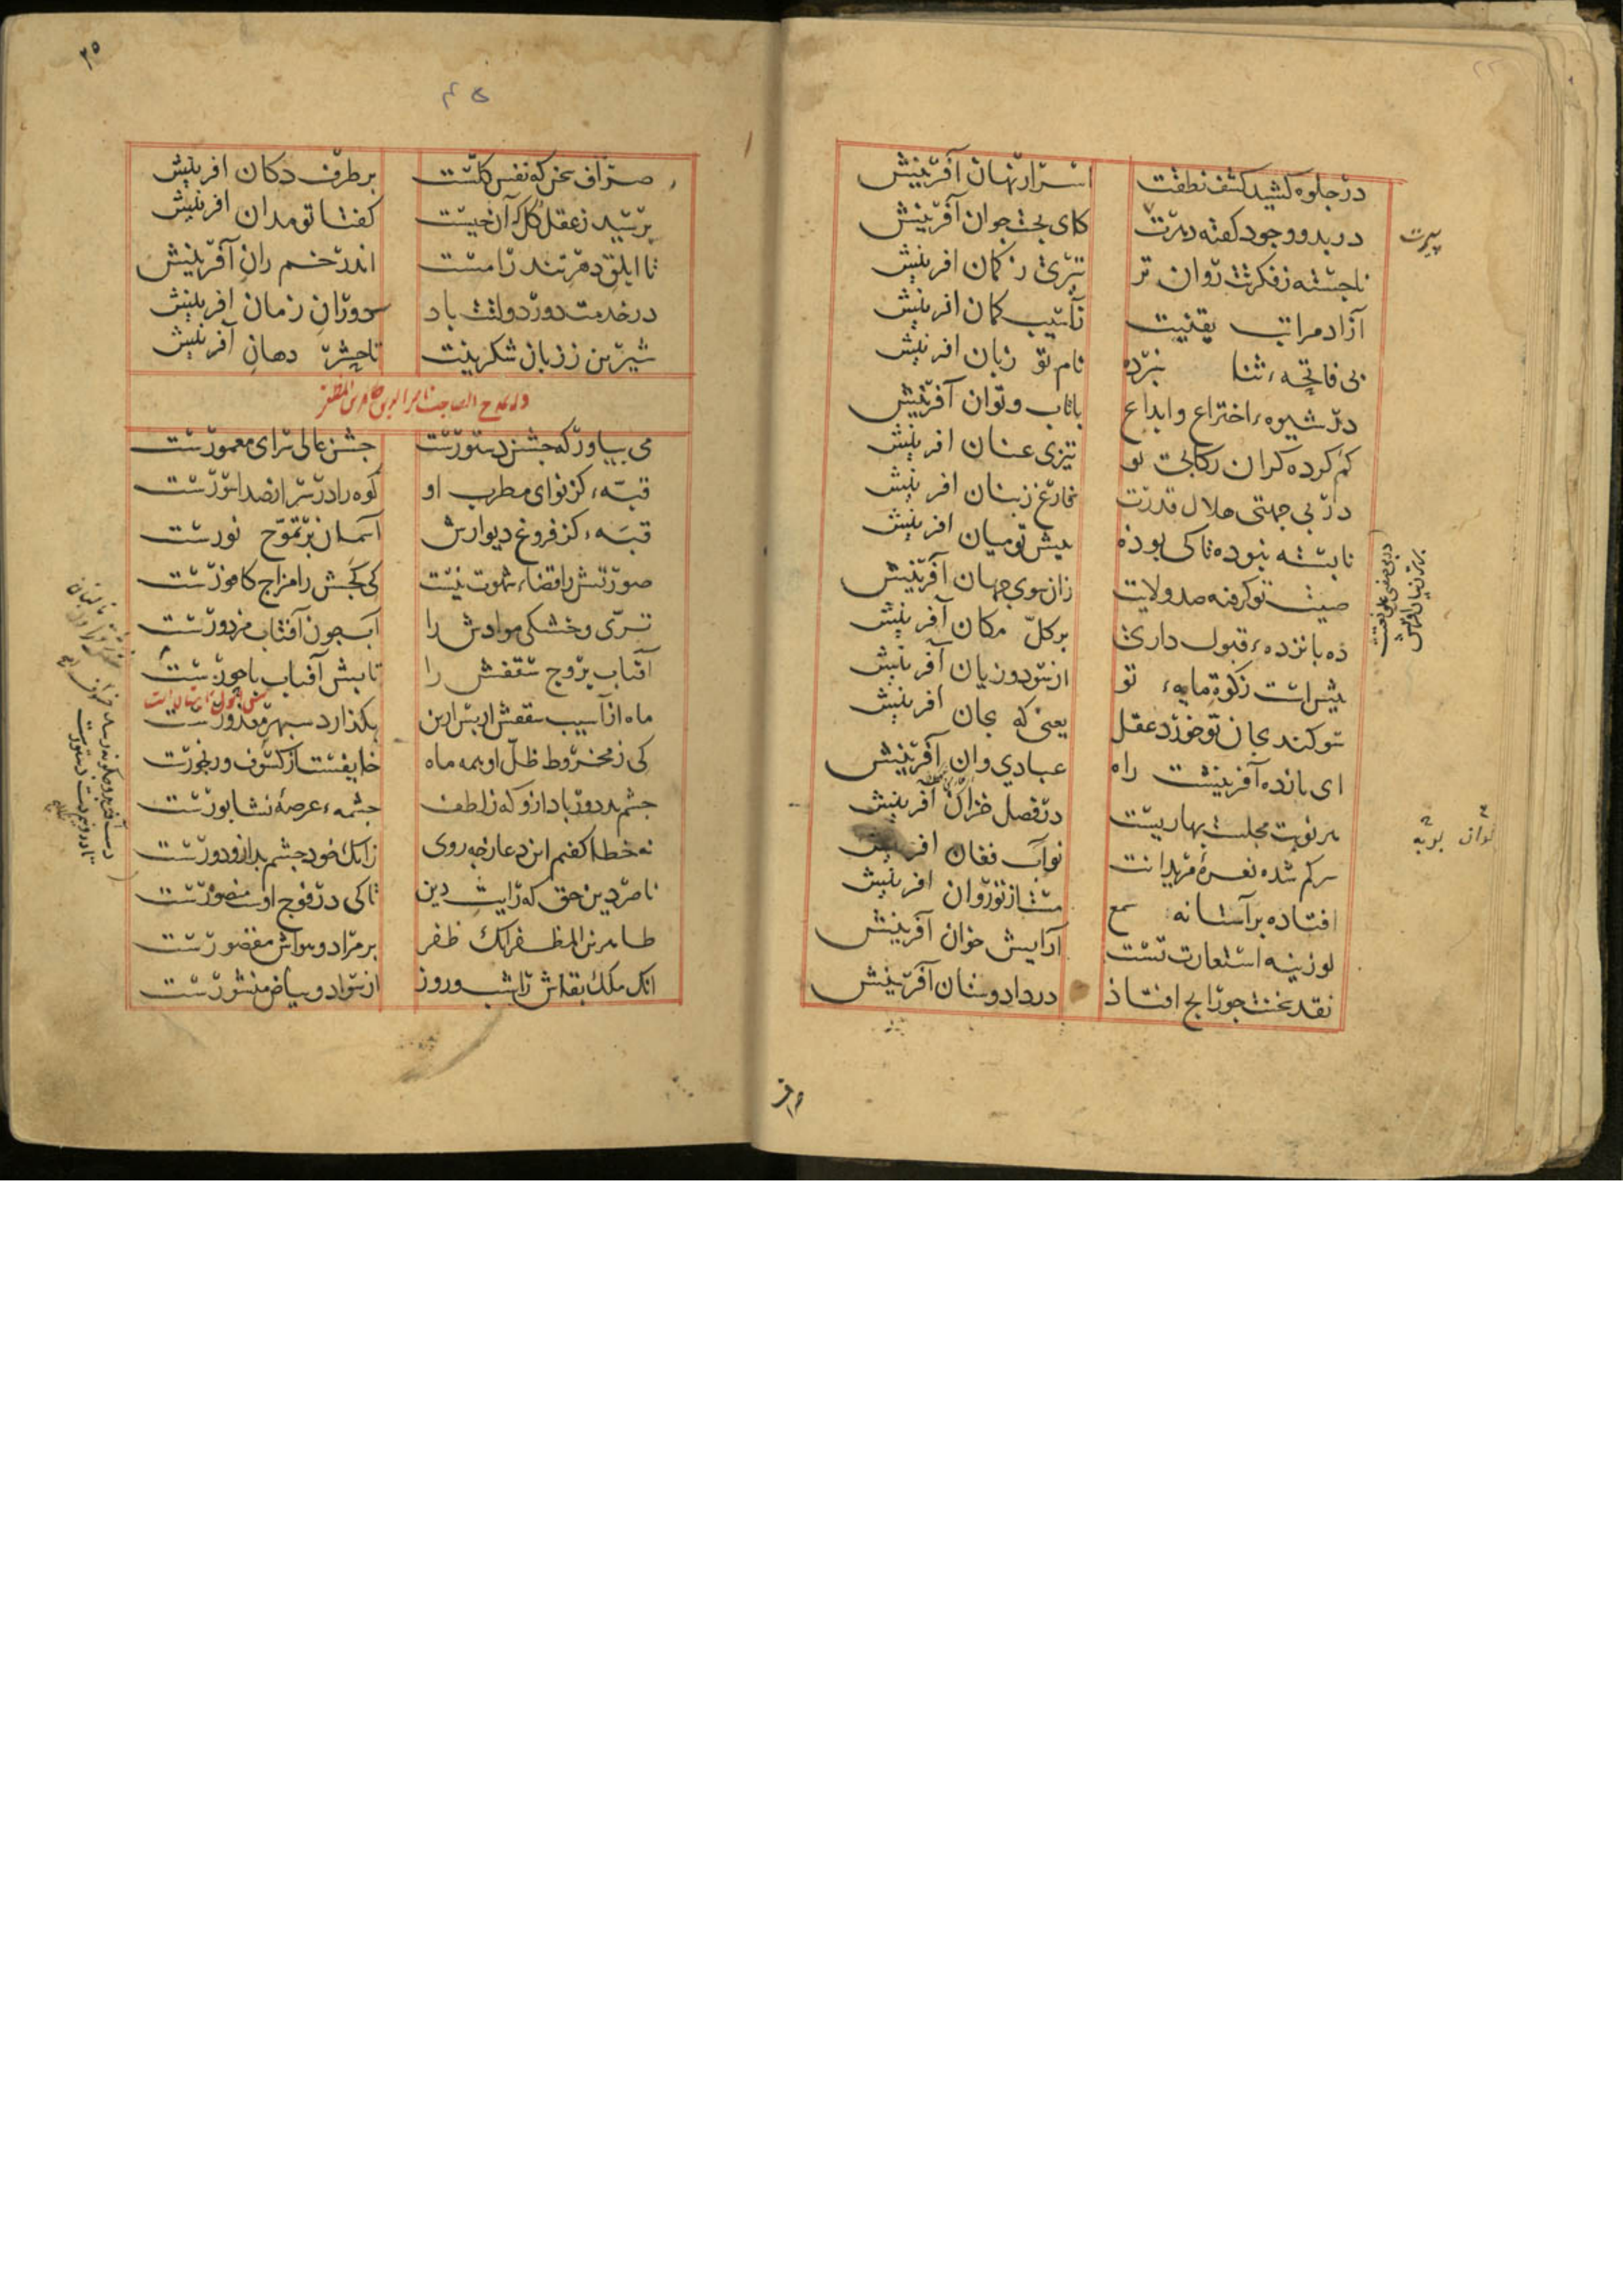 در جلوه کشید کشف نطقت اسرار نهان آفرینش
در بدو وجود گفته پیرت کای بخت جوان آفرینش
ناجسته ز فکرتت روان تر تیری ز کمان آفرینش
آزاد مراتب یقینت ز آسیب کمان آفرینش
بی فاتحهء ثنا نبرده نام تو زبان آفرینش
در شیوهء اختراع وابداع با تاب و توان آفرینش
کم کرده کران رکابی تو تیزی عنان آفرینش
در بی جهتی جلال قدرت فارغ ز بنان آفرینش
نابسته نبوده تا کی بوده پیش تو میان آفرینش
صیت تو گرفته صد ولایت زان سوی جهان آفرینش
ده بانزدهء قبول داری بر کل مکان آفرینش
بیش است زکوة مایهء تو از سود و زیان آفرینش
سوکند بجان تو خورد عقل یعنی که بجان آفرینش
ای بانده آفرینشت راه عبادی وان آفرینش
هر نوبت مجلست بهاریست در فصل خزان آفرینش
سر کم شده نعرهٔ مریدانت نواب فغان آفرینش
افتاده بر آستانه سمع مست از تو روان آفرینش
لوزینه استعارت تست آرایش خوان آفرینش
نقد سخنت جو رایج افتاذ در داد و ستان آفرینش
پیرت
صراف سخن که نفس کلست بر طرف دکان آفرینش
پرسید ز عقل کل که آن چیست گفتا تو مدان آفرینش
تا ابلق دهر تند رامست اندر خم ران آفرینش
در خدمت دور دولتت باد دوران زمان آفرینش
شیرین ز زبان شکرینت تا حشر دهان آفرینش
می بیاور که جشن دستورست جشن عالی سرای معمورست
قبهء کز نوای مطرب او کوه را در سر از صدا سورست
قبهء کز فروغ دیوارش آسمان بر تموج نورست
صورتش را قضاء شهوت نیست کی کجش را مزاج کافورست
تری و خشکی موادش را آب چون آفتاب مزدورست
آفتاب بروج سقفش را تابش آفتاب با حورست
ماه از آسیب سقفش از پس ازین بکذارد سپهر معذورست
کی ز مخروط ظل او همه ماه خایفست از کسوف و رنجورست
چشم بد دور باد ازو که ز لطف چشمهء عرصهٔ نشابورست
نه خطا کفتم این دعا ز چه روی زانک خود چشم بد ازو دورست
ناصر دین حق که رایت دین تا کی در فوج اوست منصورست
طاهر بن المظفر آنک ظفر بر مراد و هواش مقصورست
آنک ملک بقاش را شب و روز از سواد و بیاض منشورست